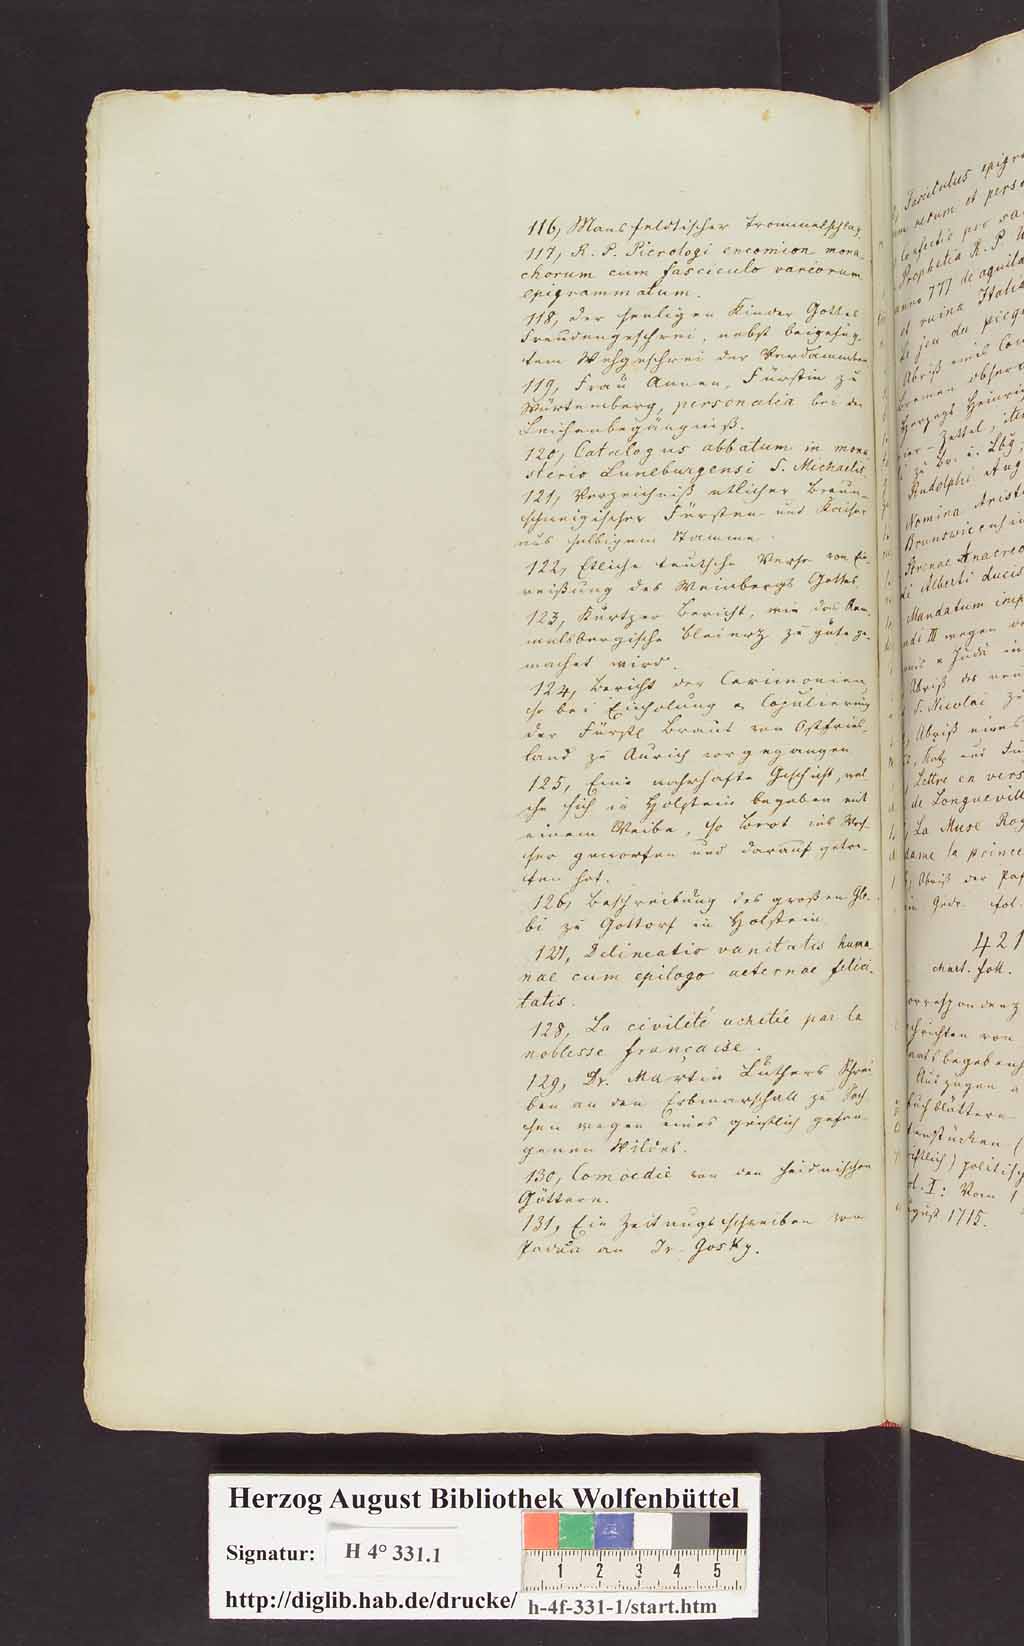 116, Mansfeldtischer Trommelschlag
117, R. P. Pierologi encomion mona-
chorum cum fasciculo variorum
epigrammatum.
118, der heiligen Kinder Gottes
Freudengeschrei, nebst beigefüg-
tem Wehgeschrei der Verdammten
119, Frau Annen, Fürstin zu
Würtemberg, personalia bei der
Leichenbegängniß.
120, Catalogus abbatum in mona-
sterio Luneburgensi S. Michaelis
121, Verzeichniß etlicher Braun-
schweigischer Fürsten und Kaiser
aus selbigem Stamme.
122, Etliche teutsche Verse von Ein-
reißung des Weinbergs Gottes.
123, Kurtzer Bericht, wie das Ram-
melsbergische bleiertz zu gute ge-
machet wird.
124, Bericht der Cerimonien
so bei Einholung u Copulierung
der Fürstl Braut von Ostfries-
land zu Aurich vorgegangen
125, Eine wahrhafte Geschicht, wel-
che sich in Holstein begeben mit
einem Weibe, so Brot ins Was-
ser geworfen und darauf getre-
ten hat.
126, Beschreibung des großen Glo-
bi zu Gottorf in Holstein
127, Delineatio vanitatis huma-
nae cum epilogo aeternae felici-
tatis.
128, La civilité achetée par la
noblesse française.
129, Dr. Martin Luthers Schrei-
ben an den Erbmarschall zu Sach-
sen wegen eines geistlich gefan-
genen Wildes.
130, Comoedie von den heidnischen
Göttern.
131, Ein Zeitungsschreiben von
Padua an Dr. Gosky.
Fasciculus epigra
rerum et perso
Prophetia R. P.
anno 777 de aquila
et ruina Italia
Abriß eines
Bremen obser
Herzogs Heinri
Zettel, ite
zu Br. u. Lbg,
Rudolphi Aug
Nomina Arist
Brunswicensi
Strenae Anacreo
di Alberti ducis
Mandatum imp
ndi III wegen
Abriß des
S. Nicolai zu
Abriß eines
Lettre en vers
de Longuevill
La Muse Roy
dame la prince
Abriß der
fol.
421
chart. foll.
orrespondenz
hrichten von
begebenh
Auszügen
buchblättern
tenstücken (
iftlich) politisch
ol. I: Vom 1
ugust 1715.
Herzog August Bibliothek Wolfenbüttel
Signatur: H 4° 331.1
1 2 3 4 5
http://diglib.hab.de/drucke/ h-4f-331-1/start.htm